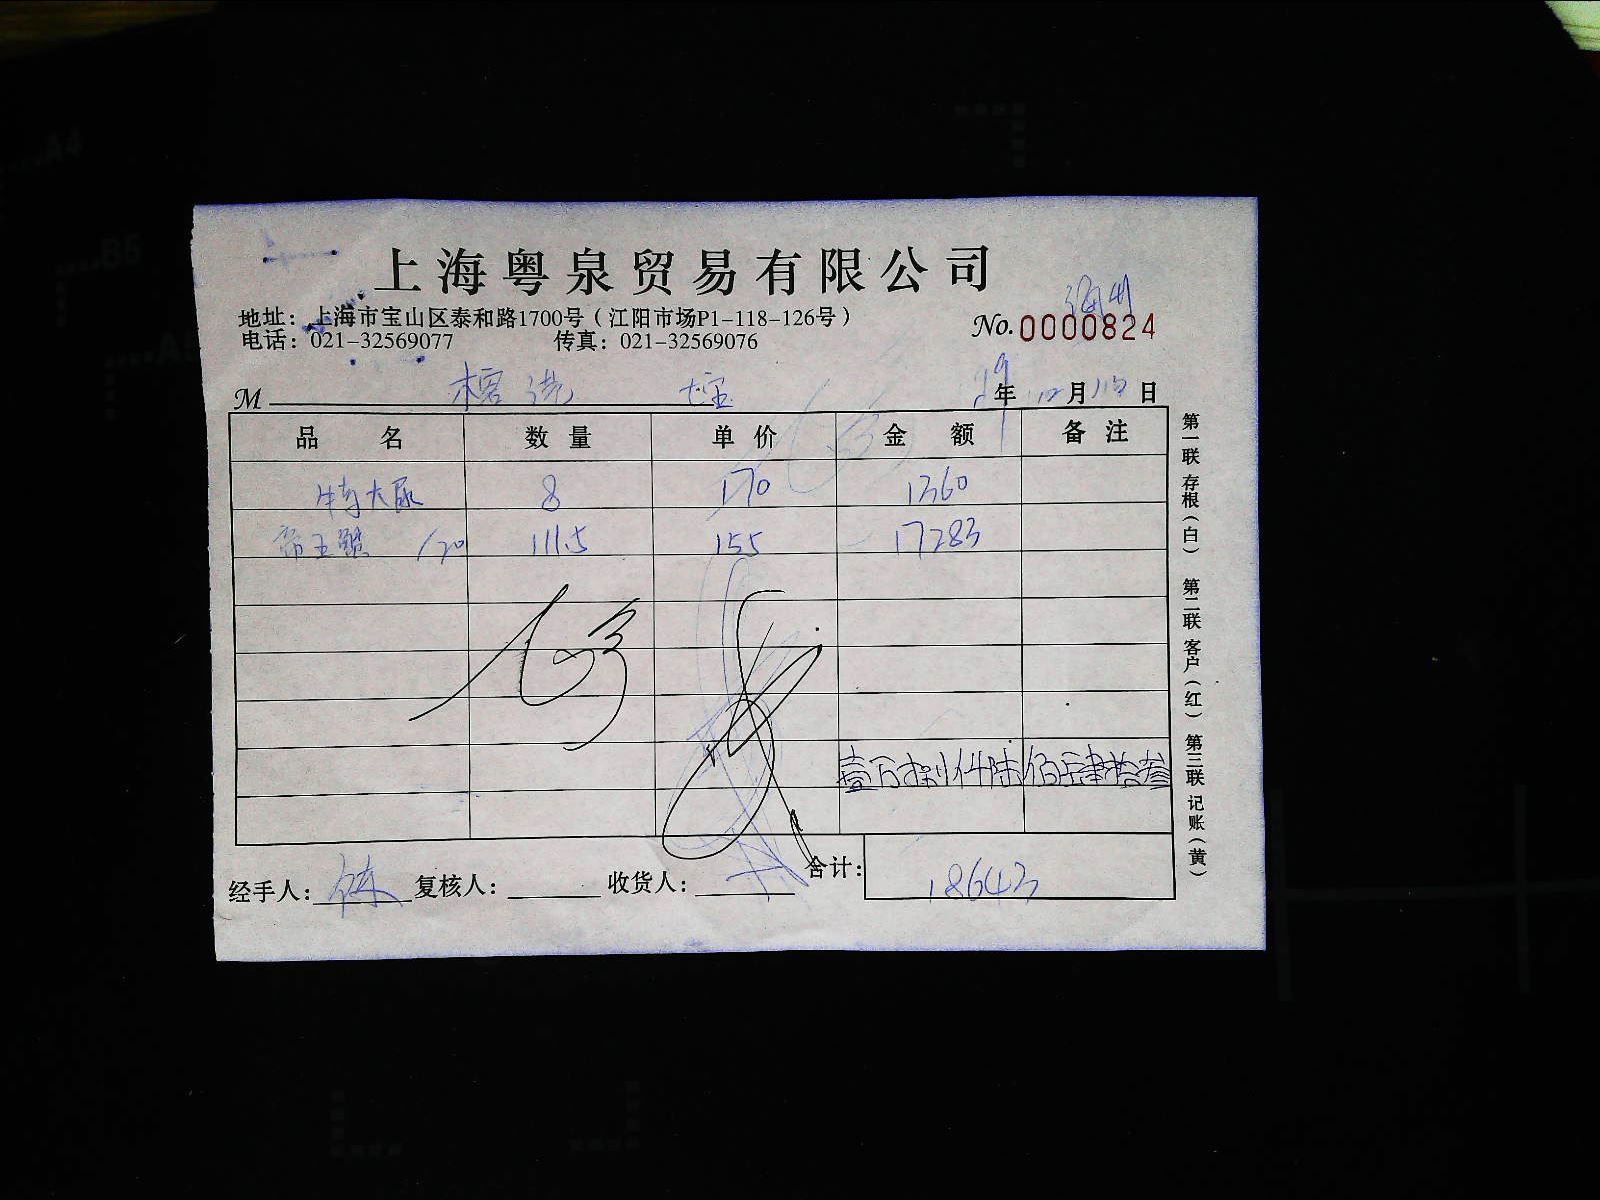 上海粤泉贸易有限公司
地址：上海市宝山区泰和路1700号（江阳市场P1-118-126号）
电话：021-32569077 传真：021-32569076
No.0000824
M 七宝 年 月 日
品名 数量 单价 金额 备注
特大尿 8 170 1360
帝王蟹 /20 111.5 155 17283
壹万捌仟陆佰肆拾叁
经手人： 复核人： 收货人： 合计：18643
第一联 存根（白） 第二联 客户（红） 第三联 记账（黄）